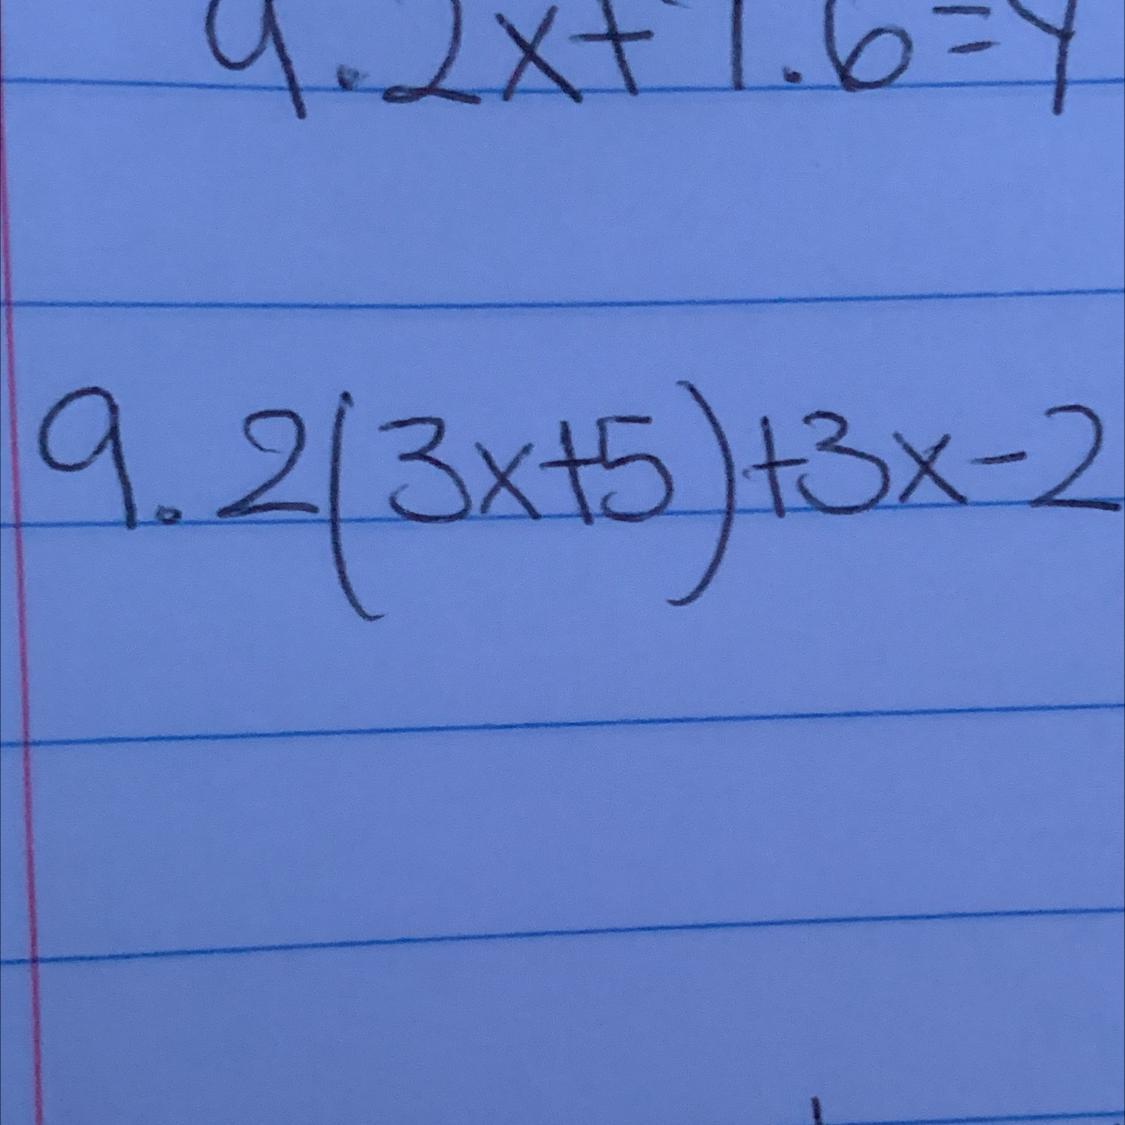 9.2x+7.6=y
9. 2(3x+5)+3x-2